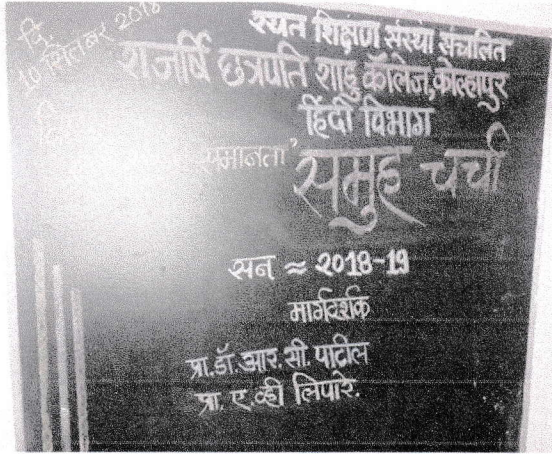 दि.
10 सितंबर 2018
रयत शिक्षण संस्था संचलित
राजर्षि छत्रपति शाहु कॉलेज,कोल्हापुर
हिंदी विभाग
समानता' समुह चर्चा
सन् ≈ 2018-19
मार्गदर्शक
प्रा.डॉ.आर.सी.पाटील
प्रा.ए.व्ही लिपारे.